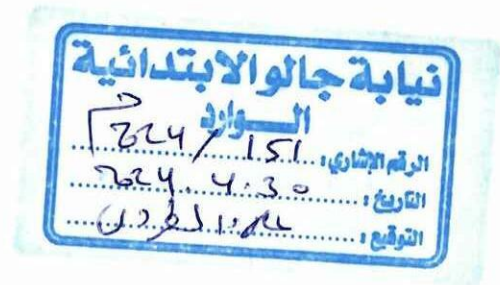 نيابة جالو الابتدائية
الوارد
الرقم الإشاري: 151 / 2024 م
التاريخ: 2024.4.30
التوقيع: